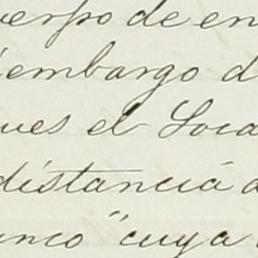 uerpo de en
iembargo d
ues el Loca
distancia a
unco "cuya